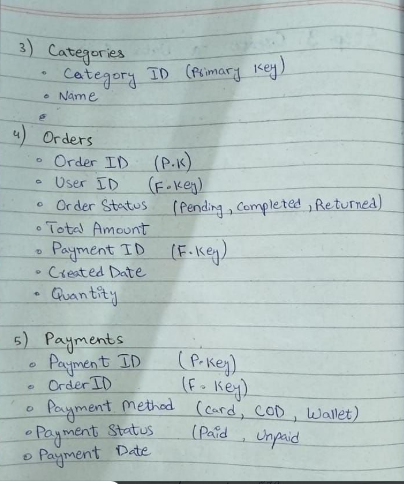 3) Categories
• Category ID (Primary Key)
• Name
4) Orders
• Order ID (P.K)
• User ID (F.Key)
• Order Status (Pending, Completed, Returned)
• Total Amount
• Payment ID (F.Key)
• Created Date
• Quantity
5) Payments
• Payment ID (P.Key)
• Order ID (F.Key)
• Payment Method (Card, COD, Wallet)
• Payment Status (Paid, Unpaid
• Payment Date